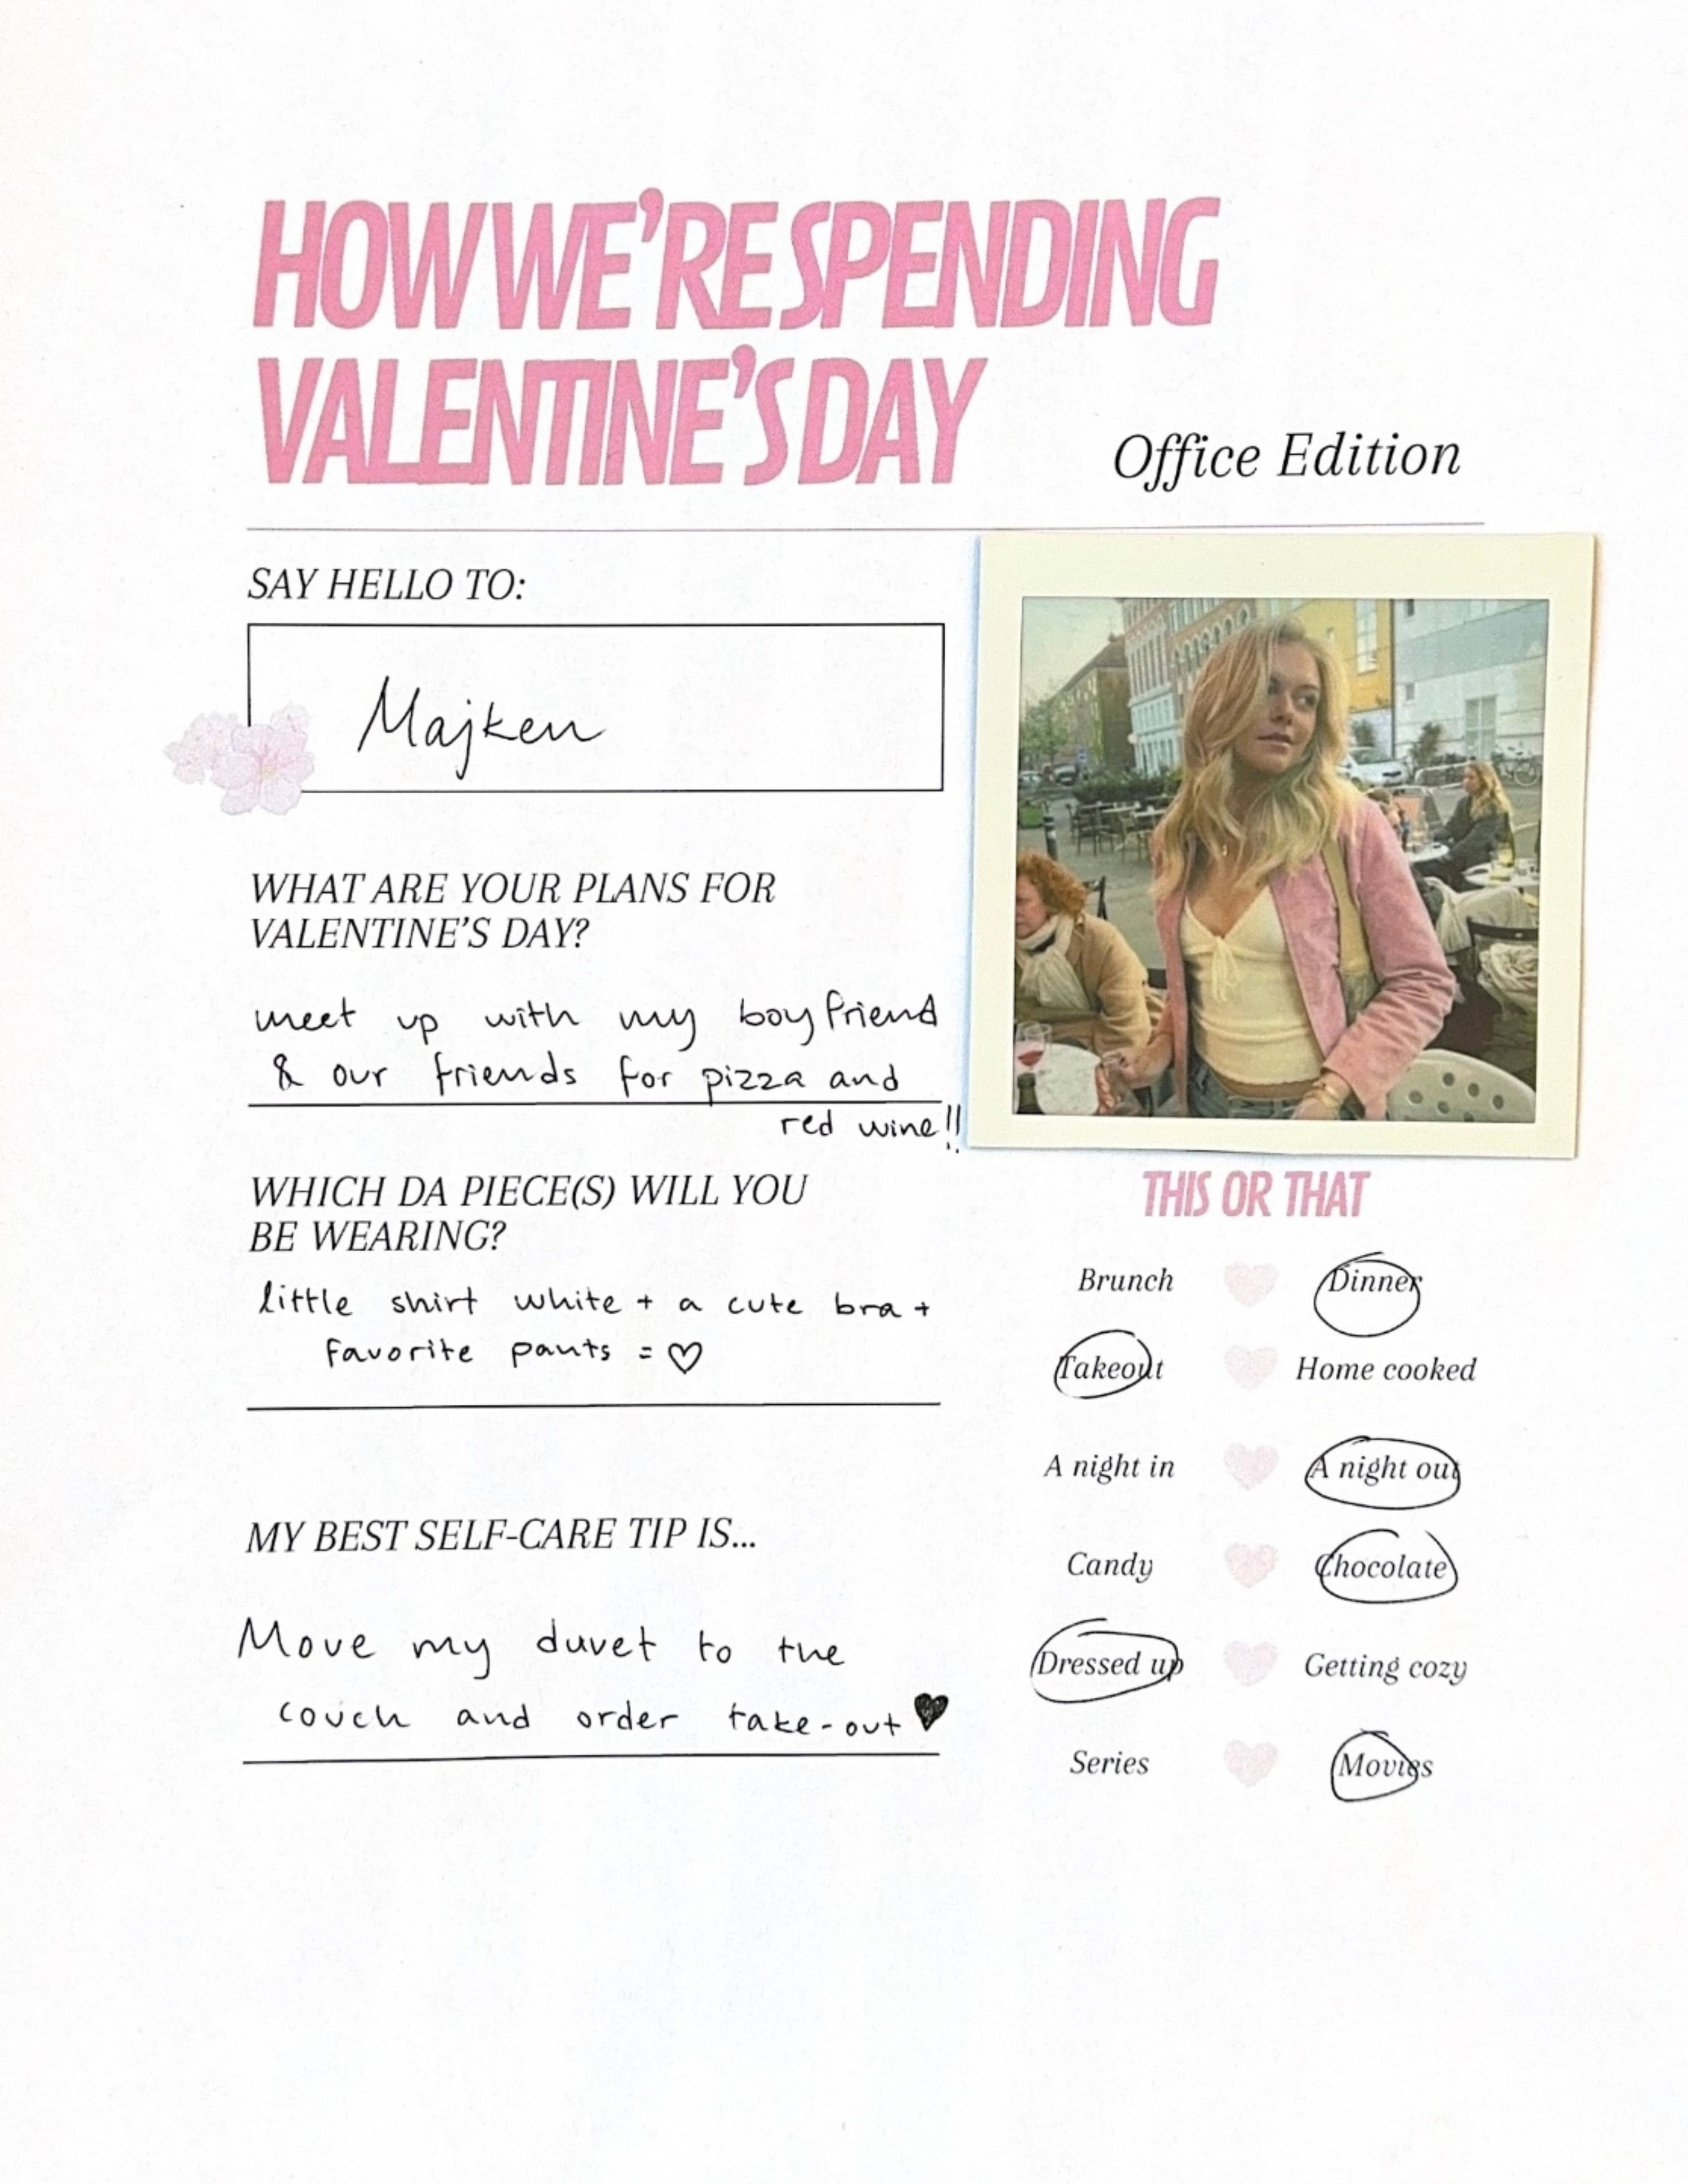 HOW WE'RE SPENDING
VALENTINE'S DAY
Office Edition
SAY HELLO TO:
Majken
WHAT ARE YOUR PLANS FOR
VALENTINE'S DAY?
meet up with my boyfriend
& our friends for pizza and
red wine!!
WHICH DA PIECE(S) WILL YOU
BE WEARING?
little shirt white + a cute bra +
favorite pants = ♡
MY BEST SELF-CARE TIP IS...
Move my duvet to the
couch and order take-out ♥
THIS OR THAT
Brunch Dinner
Takeout Home cooked
A night in A night out
Candy Chocolate
Dressed up Getting cozy
Series Movies